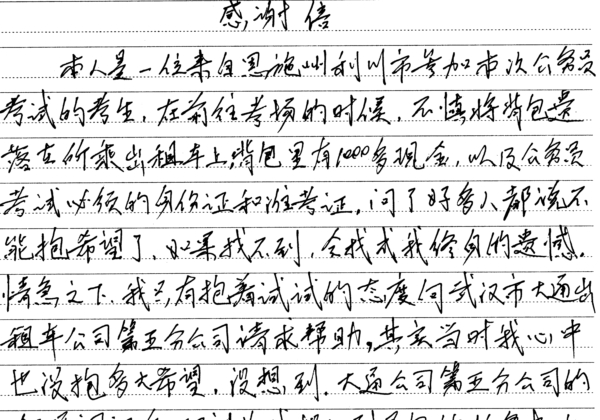 感谢信
本人是一位来自恩施州利川市参加本次公务员
考试的考生，在前往考场的时候，不慎将背包遗
落在所乘出租车上，背包里有1000多现金，以及公务员
考试必须的身份证和准考证，问了好多人都说不
能抱希望了，如果找不到，会找成我终身的遗憾。
情急之下，我只有抱着试试的态度向武汉市大通出
租车公司第五分公司请求帮助，其实当时我心中
也没抱多大希望，没想到，大通公司第五分公司的